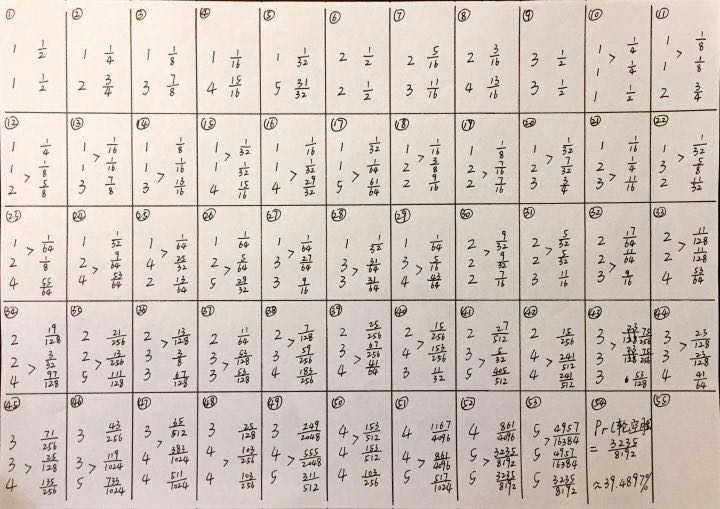 ①
1 1/2
1 1/2
②
1 1/4
2 3/4
③
1 1/8
3 7/8
④
1 1/16
4 15/16
⑤
1 1/32
5 31/32
⑥
2 1/2
2 1/2
⑦
2 5/16
3 11/16
⑧
2 3/16
4 13/16
⑨
3 1/2
3 1/2
⑩
1 > 1/4
1 1/4
1 1/2
⑪
1 > 1/8
1 1/8
2 3/4
⑫
1 > 1/4
1 1/8
2 5/8
⑬
1 > 1/16
1 1/16
3 7/8
⑭
1 > 1/8
1 1/16
3 13/16
⑮
1 > 1/32
1 1/32
4 15/16
⑯
1 > 1/16
1 1/32
4 29/32
⑰
1 > 1/32
1 1/64
5 61/64
⑱
1 > 1/16
2 3/8
2 9/16
⑲
1 > 1/8
2 7/16
2 7/16
⑳
1 > 1/32
2 7/32
3 3/4
㉑
1 > 1/16
2 1/4
3 11/16
㉒
1 > 1/32
3 5/8
2 11/32
㉓
1 > 1/64
2 1/8
4 55/64
㉔
1 > 1/32
2 9/64
4 53/64
㉕
1 > 1/64
4 25/32
2 13/64
㉖
1 > 1/64
2 5/64
5 29/32
㉗
1 > 1/64
3 27/64
3 9/16
㉘
1 > 1/32
3 31/64
3 31/64
㉙
1 > 1/64
3 5/16
4 43/64
㉚
2 > 9/32
2 9/32
2 7/16
㉛
2 > 5/32
2 5/32
3 11/16
㉜
2 > 17/64
2 11/64
3 9/16
㉝
2 > 11/128
2 11/128
4 53/64
㉞
2 > 19/128
2 3/32
4 97/128
㉟
2 > 21/256
2 13/256
5 111/128
㊱
2 > 13/128
3 3/8
3 67/128
㊲
2 > 11/64
3 53/128
3 53/128
㊳
2 > 7/128
3 59/256
4 183/256
㊴
2 > 25/256
3 67/256
4 41/64
㊵
2 > 15/256
4 153/256
3 11/32
㊶
2 > 27/512
3 5/32
5 405/512
㊷
2 > 15/256
4 241/512
4 241/512
㊸
3 > 75/256
3 75/256
3 53/128
㊹
3 > 23/128
3 23/128
4 41/64
㊺
3 > 71/256
3 25/128
4 135/256
㊻
3 > 43/256
3 119/1024
5 733/1024
㊼
3 > 65/512
4 383/1024
4 511/1024
㊽
3 > 25/128
4 103/256
4 103/256
㊾
3 > 249/2048
4 555/2048
5 311/512
㊿
4 > 153/512
4 153/512
4 103/256
51
4 > 1167/4096
4 861/4096
5 517/1024
52
4 > 861/4096
5 3235/8192
5 3235/8192
53
5 > 4957/16384
5 4957/16384
5 3235/8192
54
Pr(轮空胜)
= 3235/8192
≈39.4897%
55